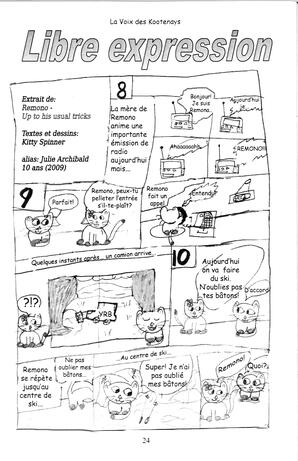 La Voix des Kootenays
Libre expression
Extrait de:
Remono -
Up to his usual tricks
Textes et dessins:
Kitty Spinner
alias: Julie Archibald
10 ans (2009)
8
La mère de
Remono
anime une
importante
émission de
radio
aujourd'hui
mais...
Bonjour!
Je suis
Remona.
Aujourd'hui
Ahaaaaahh
REMONO!!!
9
Parfait!
Remono, peux-tu
pelleter l'entrée
s'il-te-plaît?
Remono
fait un
appel
Entendu!
Quelques instants après... un camion arrive.
?!?
YRB
10
Aujourd'hui
on va faire
du ski.
N'oublies pas
tes bâtons!
D'accord
Remono
se répète
jusqu'au
centre de
ski...
Ne pas
oublier mes
bâtons...
...Au centre de ski...
Super! Je n'ai
pas oublié
mes bâtons!
Remono!
Quoi?
24